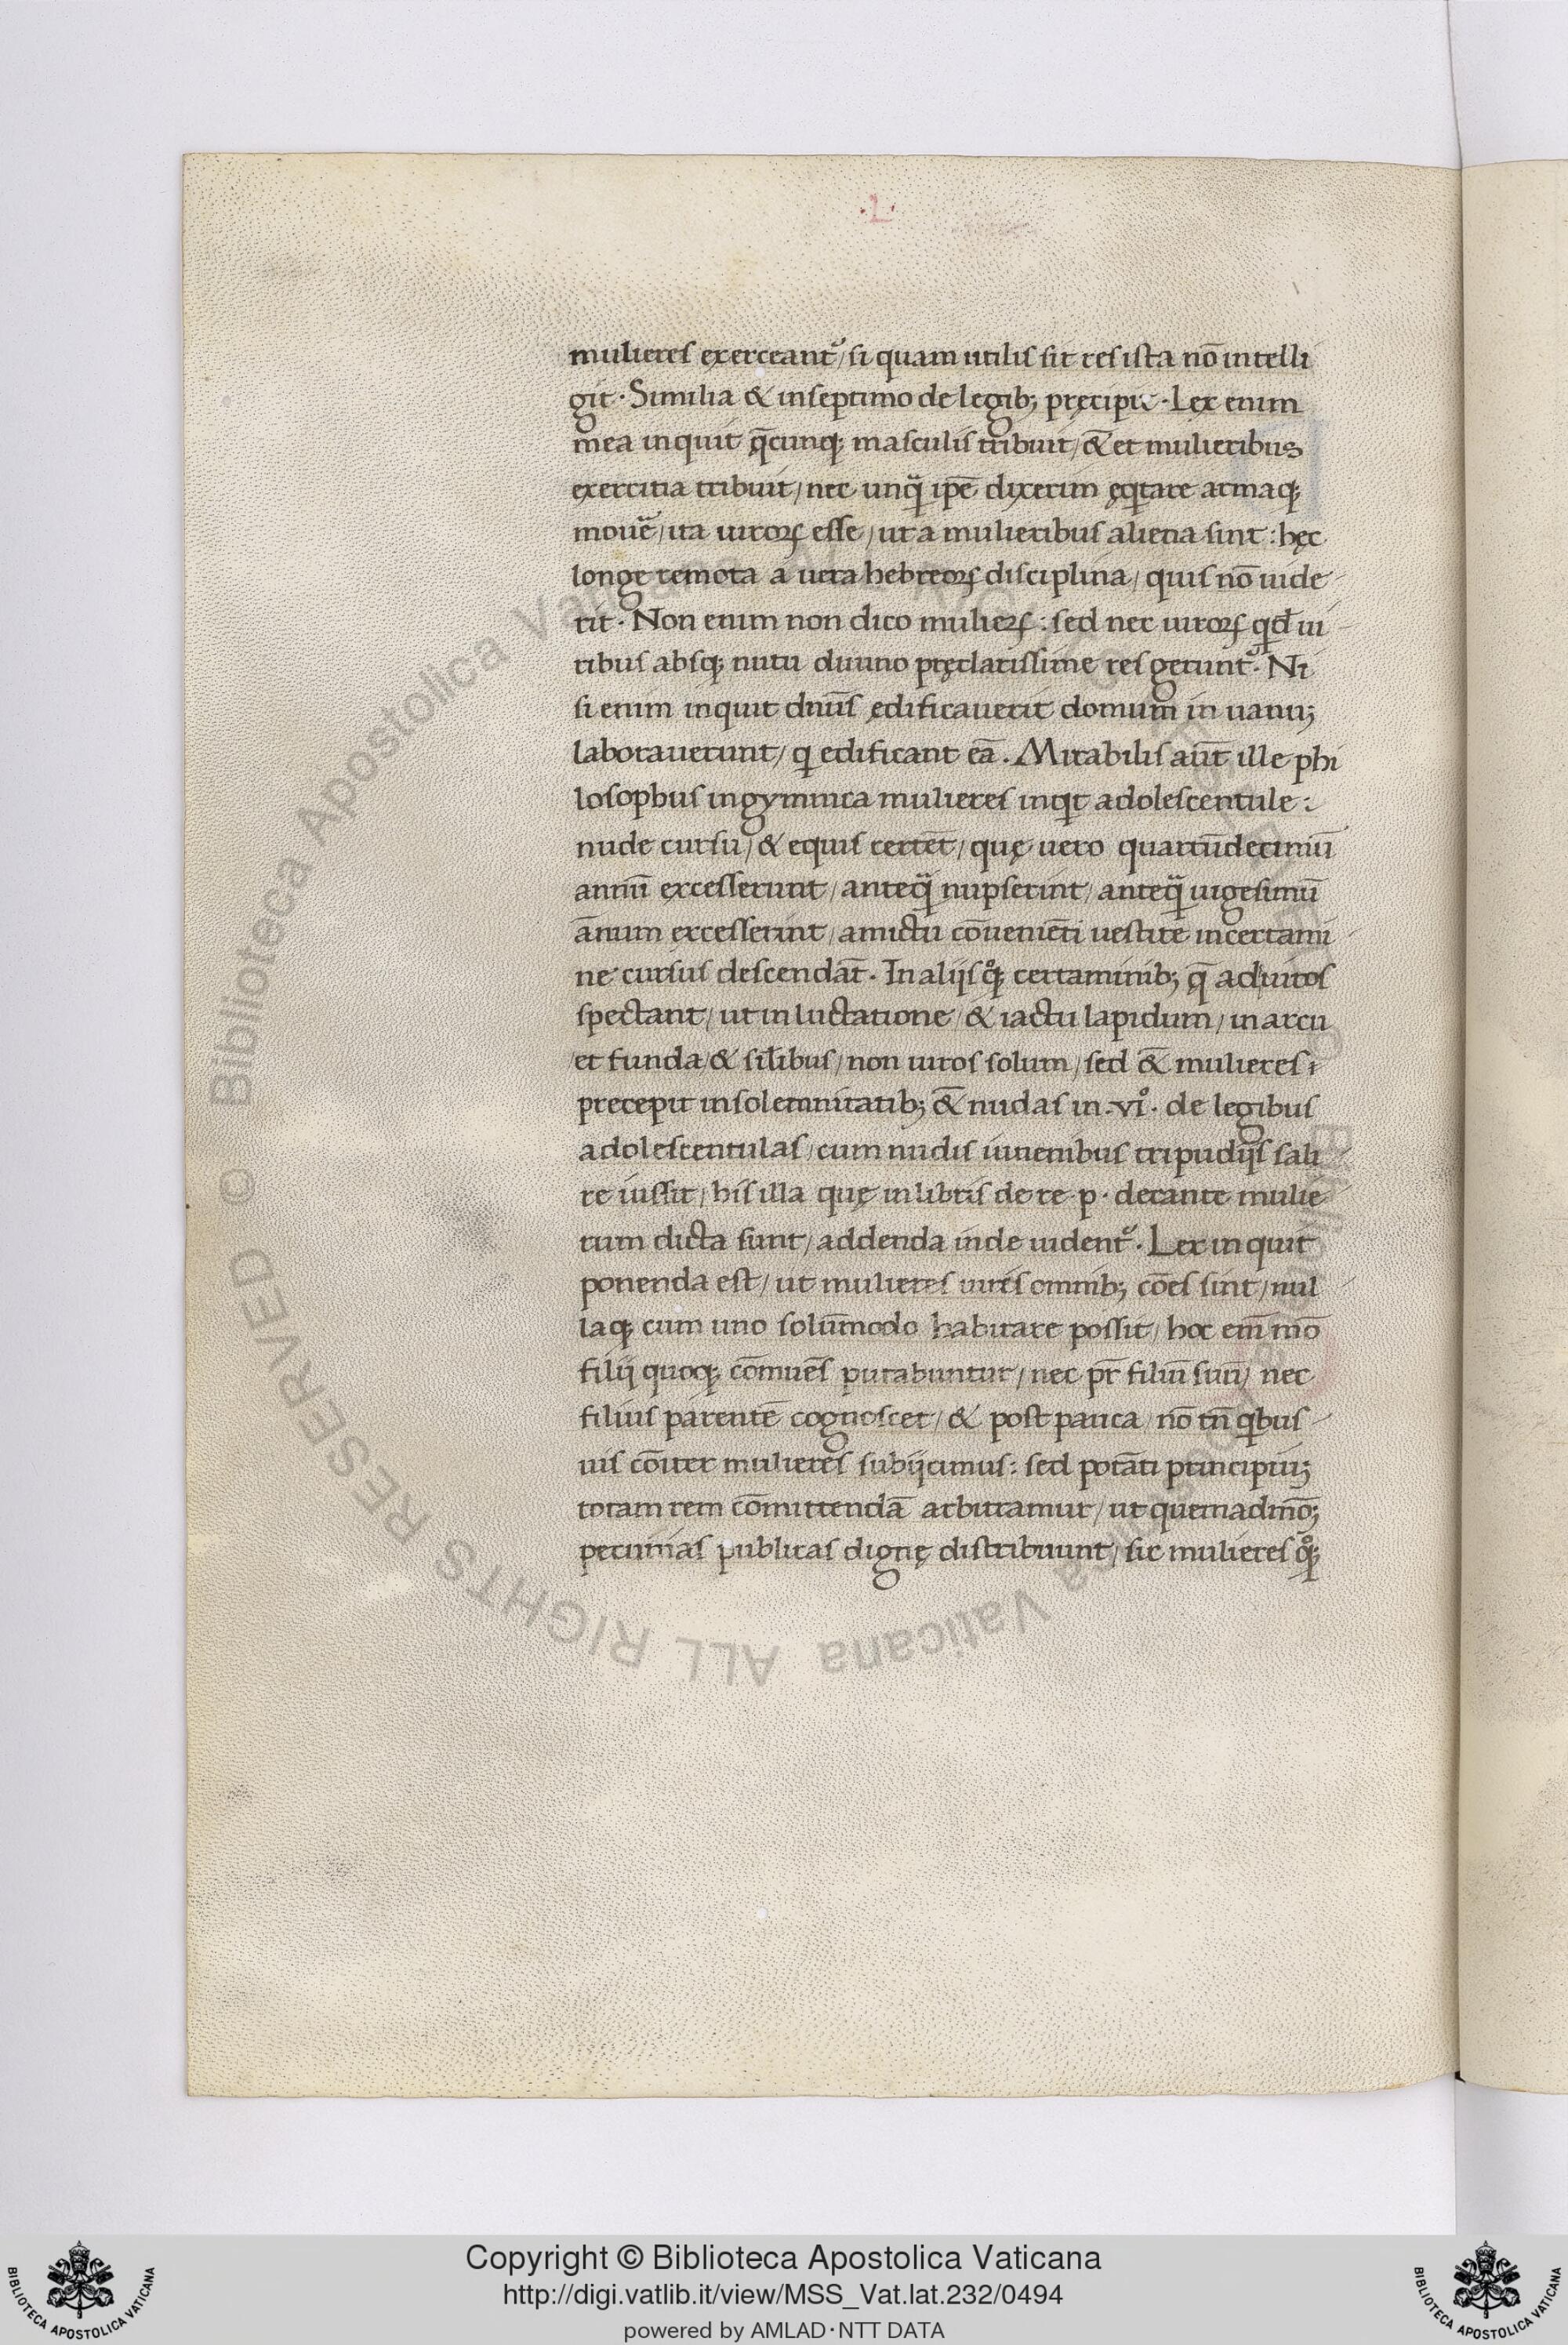 ·L·
mulieres exerceant᷒/ si quam utilis sit res ista nō intelli
git · Similia & in septimo de legib; pręcipit · Lex enim
mea inquit q̄cunq; masculis tribuit/ &̄ et mulieribus
exercitia tribuit/ nec unq̃ ip̄e dixerim ęqtare armaq;
mouē/ ita uiroꝝ esse/ ut a mulieribus aliena sint : hęc
longe remota a uera hebreoꝝ disciplina/ quis nō uide
rit · Non enim non dico mulieꝝ : sed nec uiroꝝ qd̄ ui
ribus absq; nutu diuino pręclarissime res gerunt᷒ · Ni
si enim inquit dn̄us ędificauerit domum in uanu;
laborauerunt/ q edificant eā . Mirabilis aūt ille phi
losophus in gymnica mulieres inqt adolescentule :
nude cursu/ & equis certēt/ quę uero quartūdecimū
annū excesserunt/ anteq̃ nupserint/ anteq̃ uigesimū
ānum excesserint/ amictu cōueniēti uestite in certami
ne cursus descendāt · In alijs qͦ; certaminib; q̄ ad uiros
spectant/ ut in luctatione/ & iactu lapidum/ in arcu
et funda/ & sil̄ibus/ non uiros solum/ sed &̄ mulieres :
precepit in solemnitatib; &̄ nudas in · vıͦ · de legibus
adolescentulas/ cum nudis iuuenibus tripudijs sali
re iussit/ his illa quę in libris de re · p · de cante mulie
rum dicta sunt/ addenda inde uident᷒ · Lex inquit
ponenda est/ ut mulieres uiris omnib; cōes sint/ nul
laq; cum uno solūmodo habitare possit/ hoc em̄ mō
filij quoq; cōmunēs putabuntur/ nec pr̄ filiū suū/ nec
filius parentē cognoscet/ & post pauca/ nō tn̄ qbus
uis cōiter mulieres subijcimus : sed potāti principiu;
totam rem cōmittendā arbitramur/ ut quemadmō;
pecunias publicas dignę distribuunt/ sic mulieres qͦ;
Copyright © Biblioteca Apostolica Vaticana
http://digi.vatlib.it/view/MSS_Vat.lat.232/0494
powered by AMLAD·NTT DATA
BIBLIOTECA APOSTOLICA VATICANA
BIBLIOTECA APOSTOLICA VATICANA
Biblioteca Apostolica Vaticana ALL RIGHTS RESERVED ©